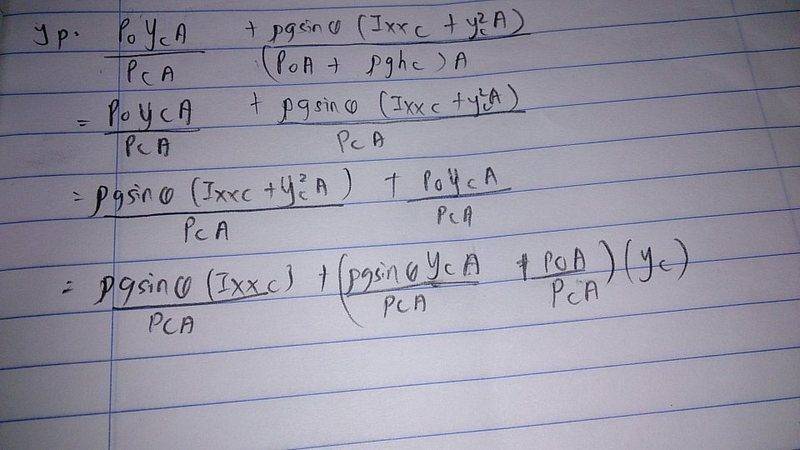 yp. P₀ y_c A / P_c A + ρg sin θ (Ixxc + y_c² A) / (P₀A + ρgh_c) A
= P₀ y_c A / P_c A + ρg sin θ (Ixxc + y_c² A) / P_c A
= ρg sin θ (Ixxc + y_c² A) / P_c A + P₀ y_c A / P_c A
= ρg sin θ (Ixxc) / P_c A + (ρg sin θ y_c A / P_c A + P₀A / P_c A) (y_c)